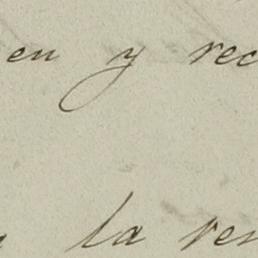 en y rec
la ren